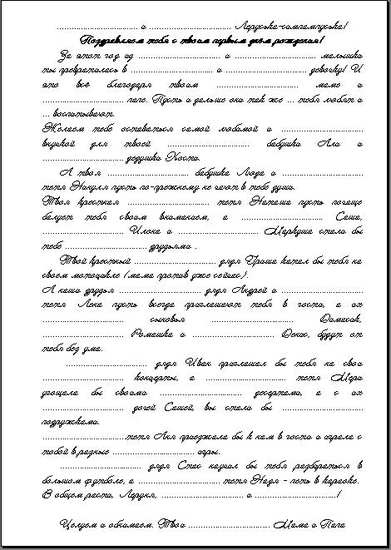 ........................ а ........................ Лерунька-симпомпунька!
Поздравляем тебя с твоим первым днём рождения!
За этот год од ........................ а ........................ малышки
ты превратилась в ........................ а ........................ девочку! И
это всё благодаря твоим ........................ маме и
........................ папе. Пусть и дальше они так же ... тебя любят и
... воспитывают.
Желаем тебе оставаться самой любимой и ........................
внучкой для твоей ........................ бабушки Али и
........................ дедушки Коста.
А твоя ........................ бабушка Люда и ........................
тетя Никуля пусть по-прежнему не чают в тебе души.
Твоя крестная ........................ тетя Наташа пусть почаще
балует тебя своим вниманием, а ........................ Саша,
........................ Илюха и ........................ Маркуша стали бы
тебе ........................ друзьями.
Твой крестный ........................ дядя Гриша катал бы тебя на
своем мотоцикле (мама против уже сейчас).
А наши друзья ........................ дядя Андрей и ........................
тетя Лена пусть всегда приглашают тебя в гости, а их
........................ сыновья ........................ Данасик,
........................ Ромашка и ........................ Денис, будут от
тебя без ума.
........................ дядя Иван приглашал бы тебя на свои
........................ концерты, а ........................ тетя Мари
угощала бы своими ........................ десертами, а с их
........................ дочей Сашей, вы стали бы ........................
подружками.
........................ тетя Ася приезжала бы к нам в гости и играла с
тобой в разные ........................ игры.
........................ дядя Стас научил бы тебя разбираться в
большом футболе, а ........................ тетя Надя - петь в караоке.
В общем расти, Леруня, ........................ и ........................!
Целуем и обнимаем. Твои ........................ Мама и Папа